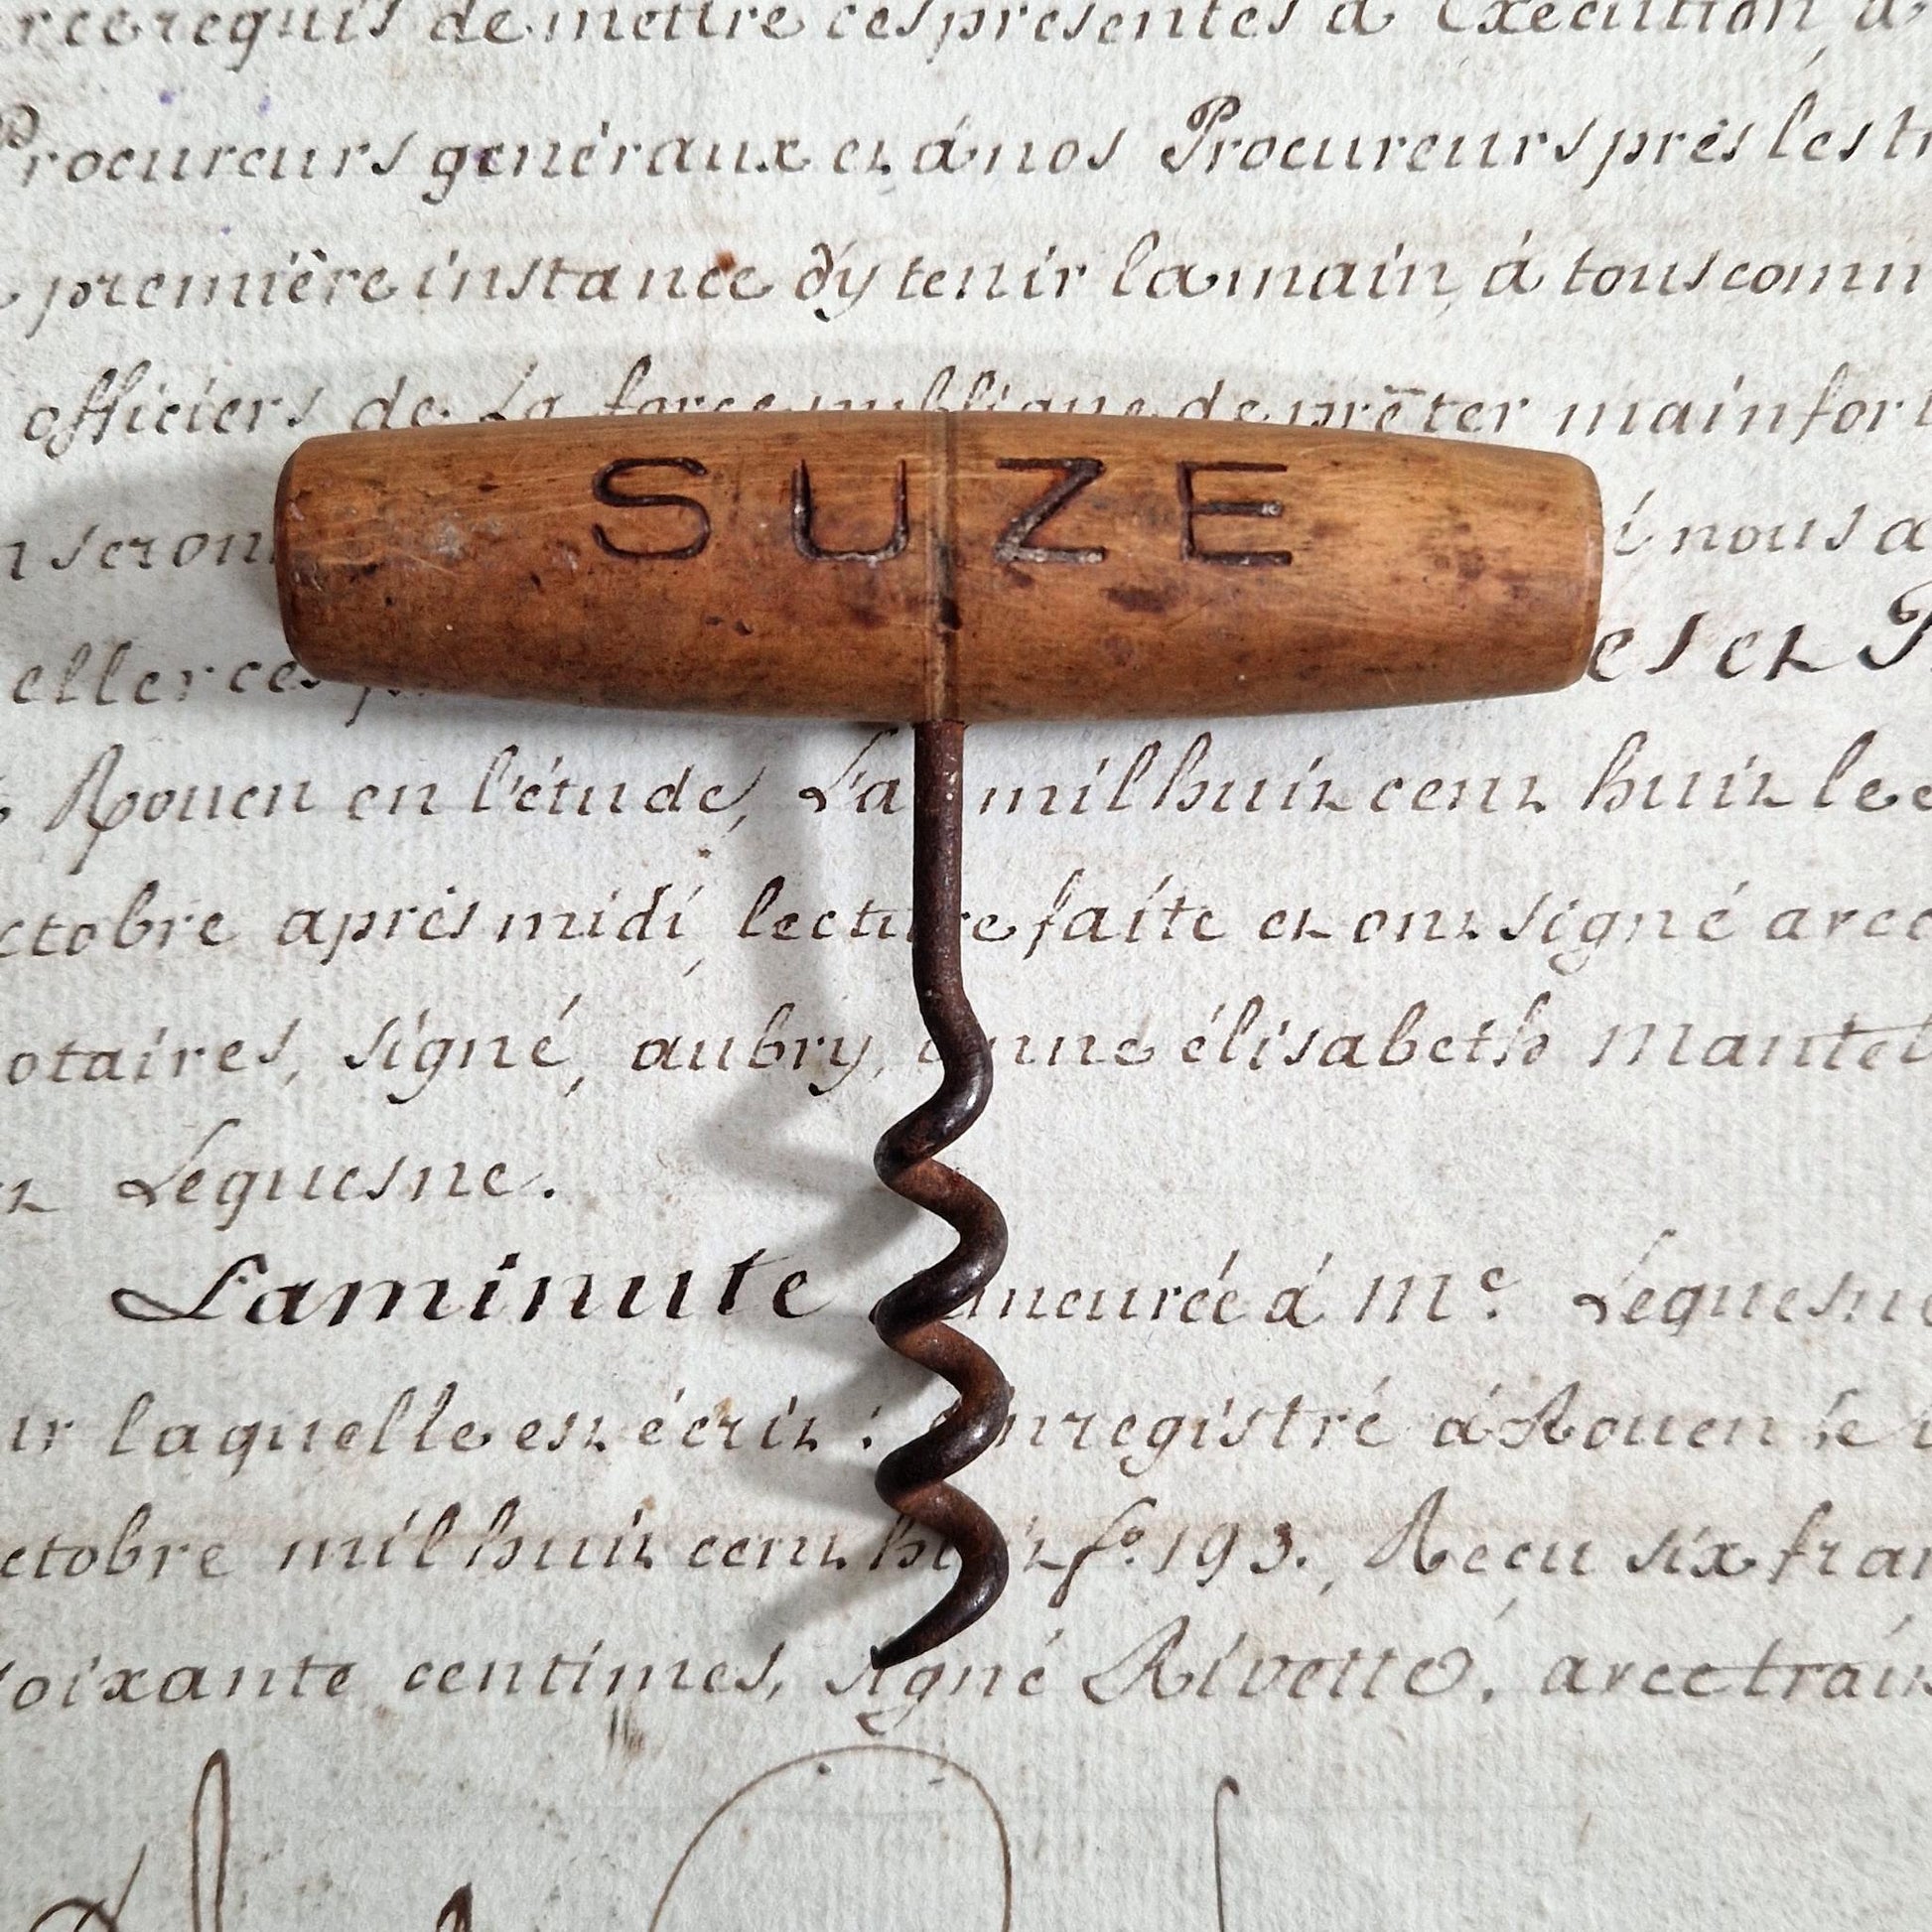 requis de mettre ces présentes à Exécution, à
Procureurs généraux et à nos Procureurs près les tr
première instance d'y tenir la main, à tous comm
officiers de la force publique de prêter main fort
SUZE
seront i nous a
eller ces es et P
Rouen en l'étude, L'a mil huit cent huit le
ctobre après midi, lecture faite et ont signé avec
otaires, signé, aubry, anne élisabeth Mantel
Lequesne.
La minute meurée à Me. Lequesne
ur laquelle est écrit : enregistré à Rouen le
ctobre mil huit cent huit fo. 193. Reçu six fran
soixante centimes, signé Rivette, avec trai